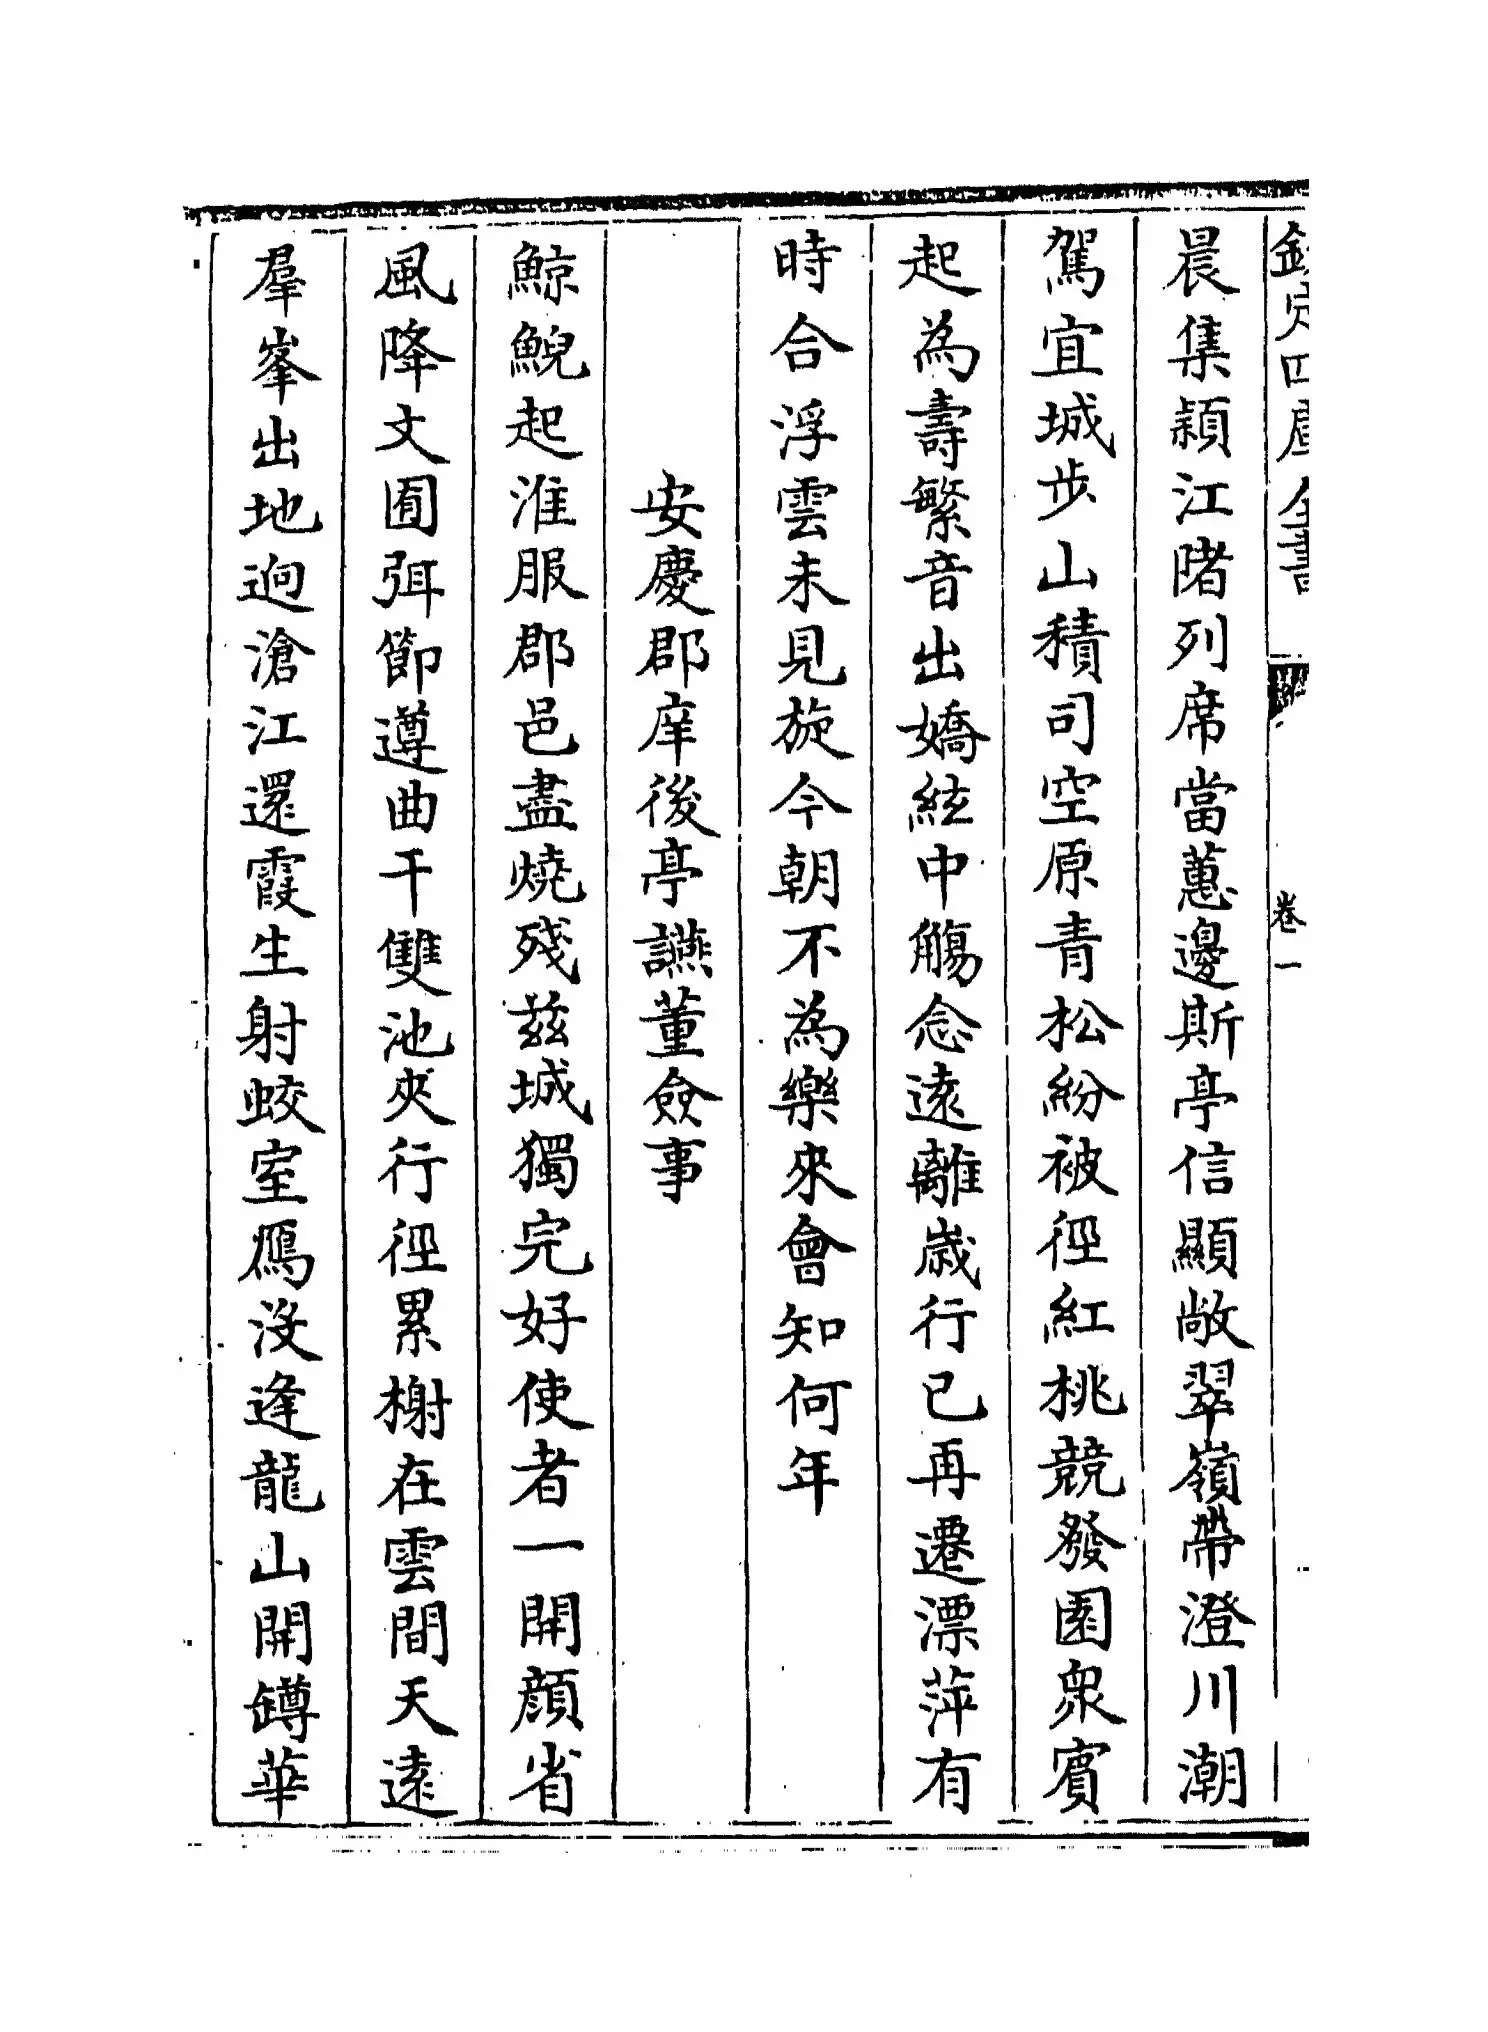 欽定四庫全書
卷一
晨集潁江睹列席當蕙邊斯亭信顯敞翠嶺帶澄川潮
駕宜城步山積司空原青松紛被徑紅桃競發園衆賓
起為壽繁音出嬌絃中觴念遠離歲行已再遷漂萍有
時合浮雲未見旋今朝不為樂來會知何年
安慶郡庠後亭讌董僉事
鯨鯢起淮服郡邑盡燒殘兹城獨完好使者一開顔省
風降文囿弭節遵曲干雙池夾行徑累榭在雲間天逺
羣峯出地迥滄江還霞生射蛟室鴈没逢龍山開罇華